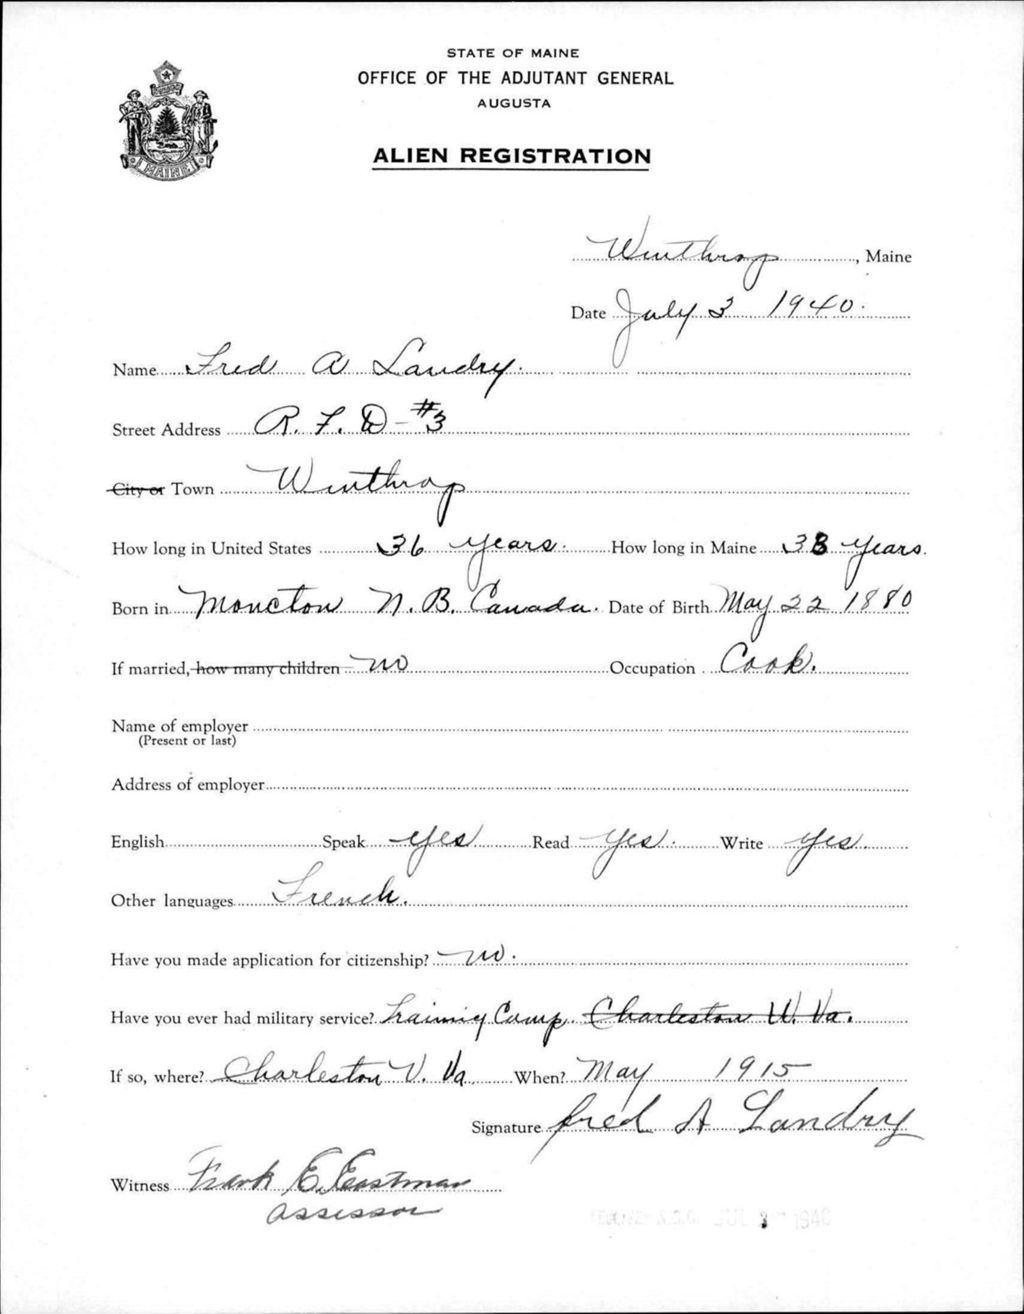 STATE OF MAINE
OFFICE OF THE ADJUTANT GENERAL
AUGUSTA
ALIEN REGISTRATION
MAINE
Winthrop, Maine
Date July 3 1940.
Name Fred A Landry.
Street Address R. F. D - #3
City or Town Winthrop
How long in United States 36 years. How long in Maine 38 years.
Born in Moncton N. B. Canada. Date of Birth May 22 1880
If married, how many children no Occupation Cook.
Name of employer
(Present or last)
Address of employer
English Speak yes Read yes. Write yes.
Other languages French.
Have you made application for citizenship? no.
Have you ever had military service? Training Camp. Charleston W. Va.
If so, where? Charleston V. Va. When? May 1915
Signature Fred A Landry
Witness Frank E. Eastman
assessor
JUL 3 1940